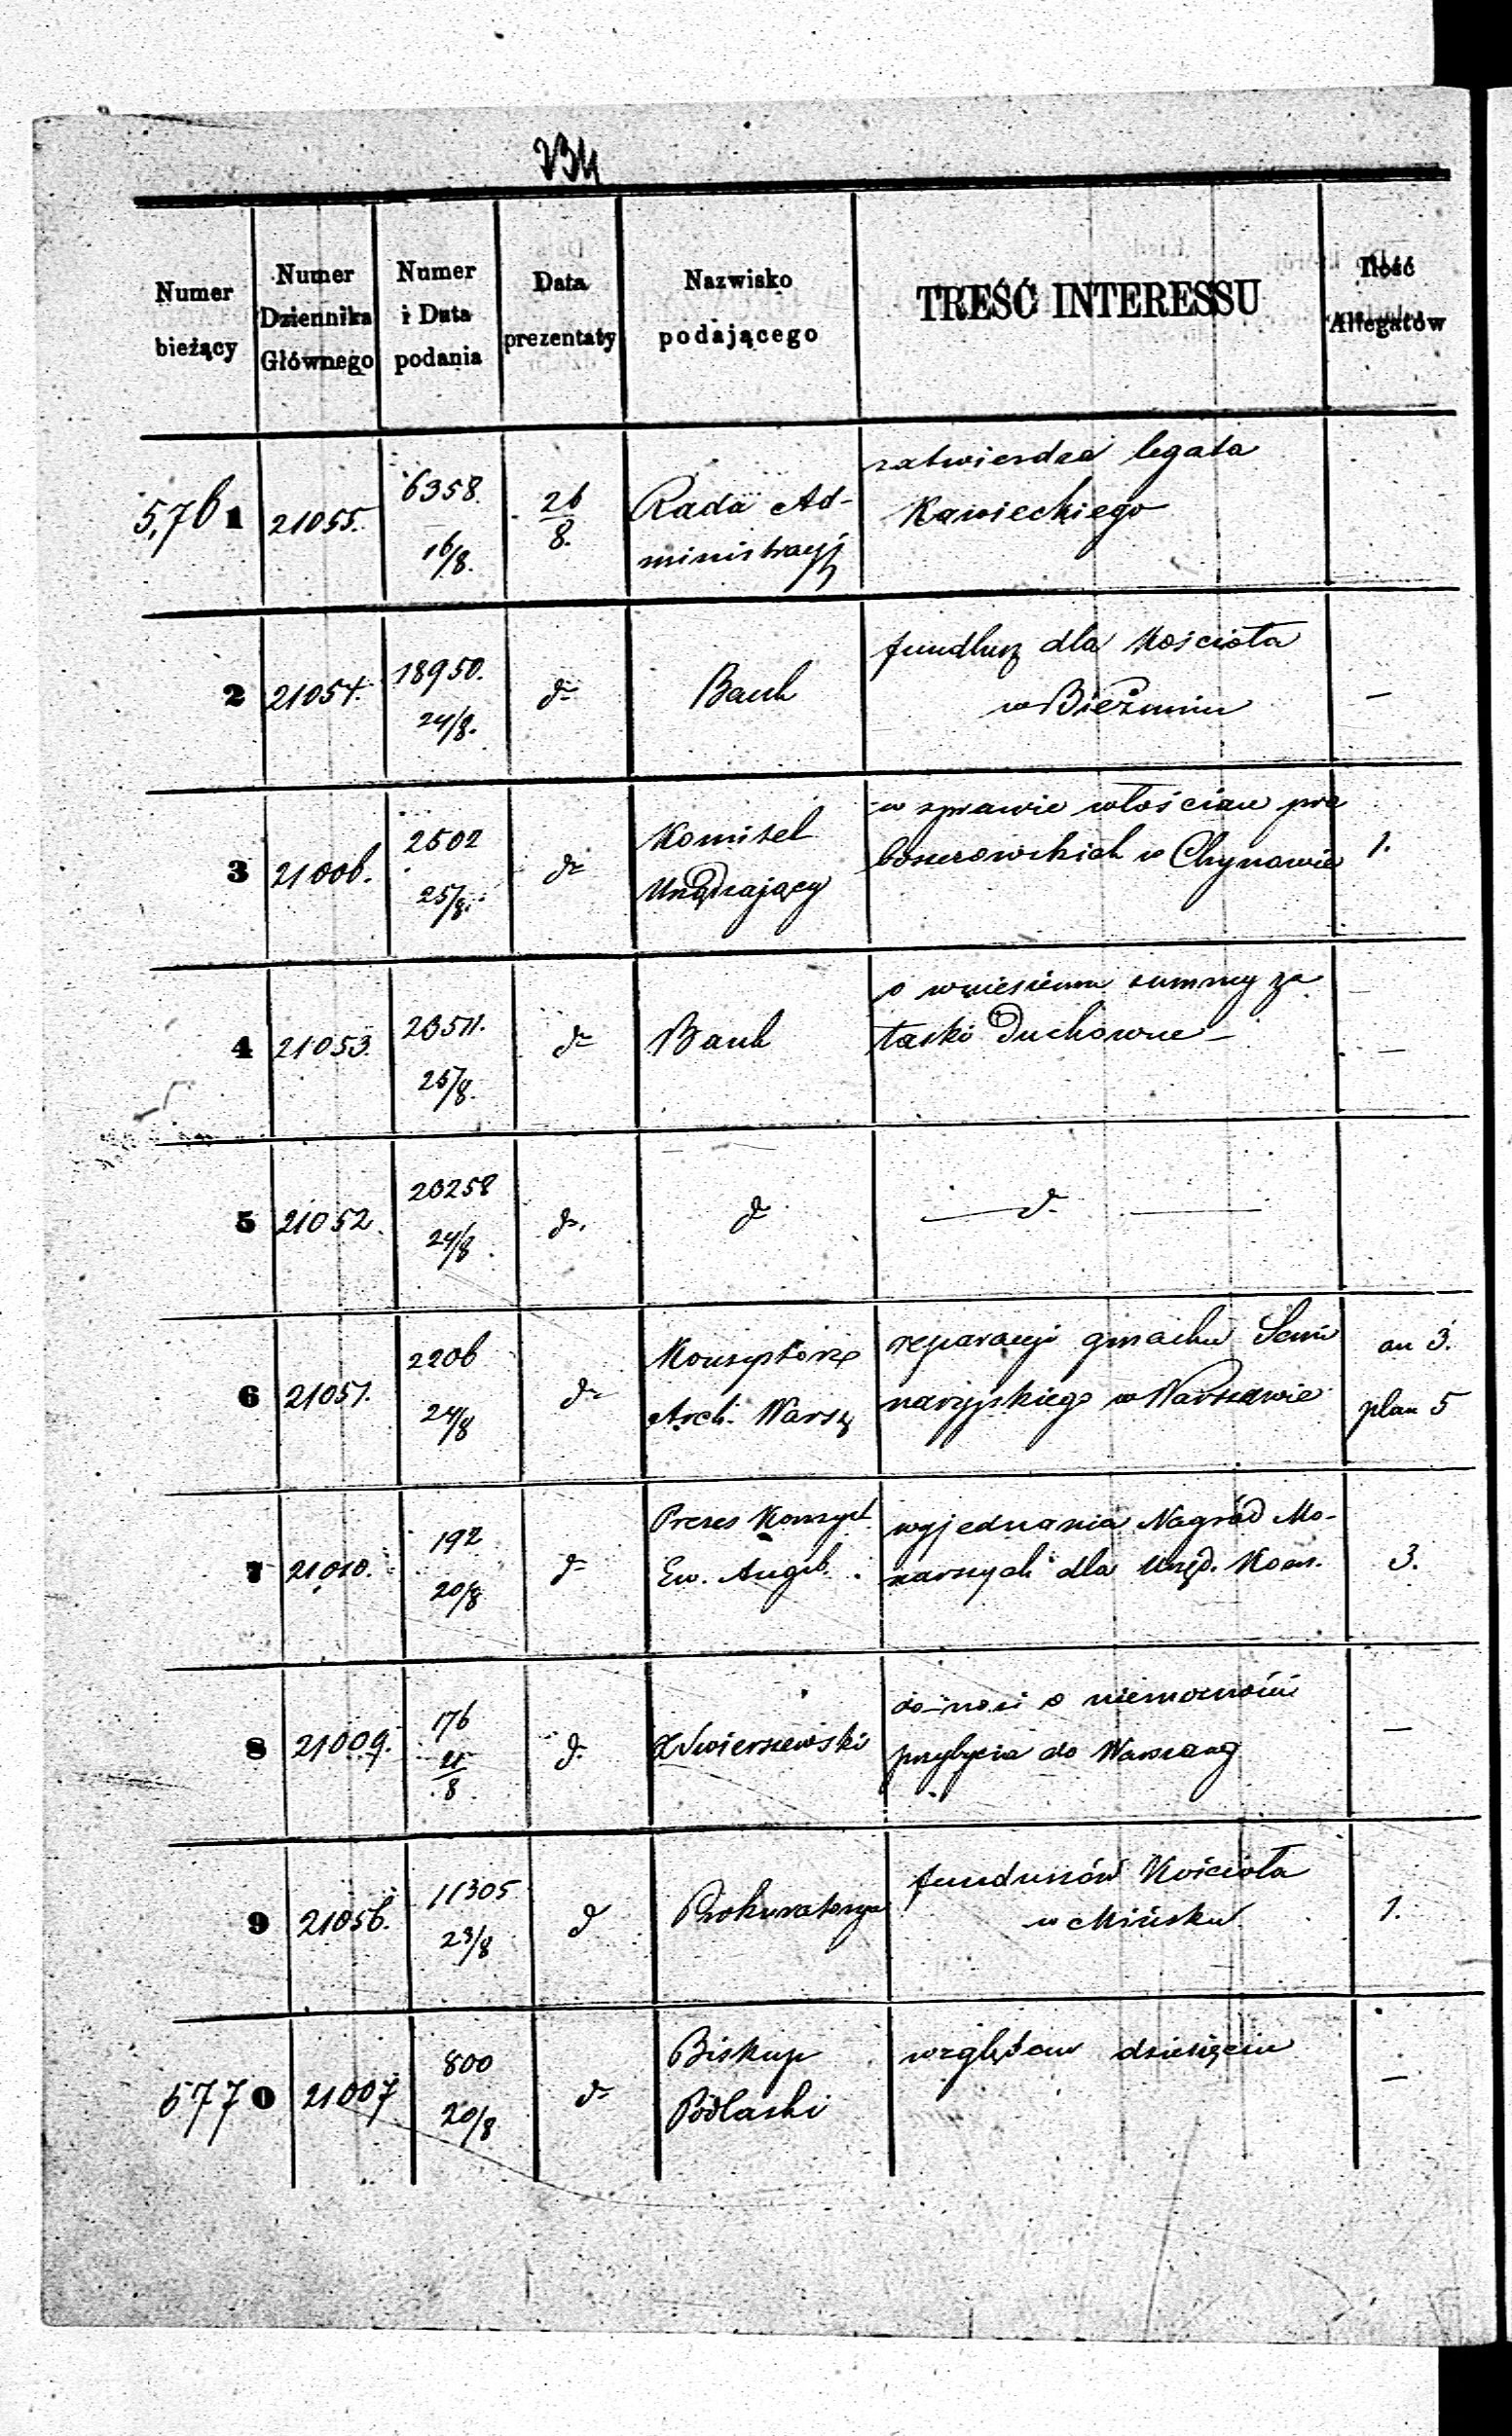 234
Numer bieżący
Numer Dziennika Głównego
Numer i Data podania
Data prezentaty
Nazwisko podającego
TREŚĆ INTERESSU
Ilość Allegatów
5,761
21055.
6358.
16/8.
26/8.
Rada Ad-
ministracyj
zatwierdza legata
Kawieckiego
2
21054.
18950.
24/8.
d-
Bank
fundusz dla Kościoła
w Bieżuniu
—
3
21006.
2502
25/8.
d-
Komitet
Urządzający
w sprawie włościan pro
boszczowskich w Chynowie
1.
4
21053.
20511.
25/8.
d-
Bank
o wniesieniu summy za
taski Duchowne —
—
5
21052.
20258
24/8.
d-.
d-
— d- —
6
21051.
2206
24/8
d-
Konsystorz
Arch. Warsz
reparacyi gmachu Semi
naryjskiego w Warszawie
an 3.
plan 5
7
21010.
192
20/8
d-
Prezes Konsyst
Ew. Augsb.
wyjednania Nagród Mo-
narszych dla Urzęd. Kons.
3.
8
21009.
176
d.
X Swierszewski
donosi o niemożności
przybycia do Warszawy
—
9
21056.
11305
23/8
d
Prokuratorya
funduszów Kościoła
w Mińsku
1.
5770
21007
800
20/8
d-
Biskup
Podlaski
względem dziesięcin
—